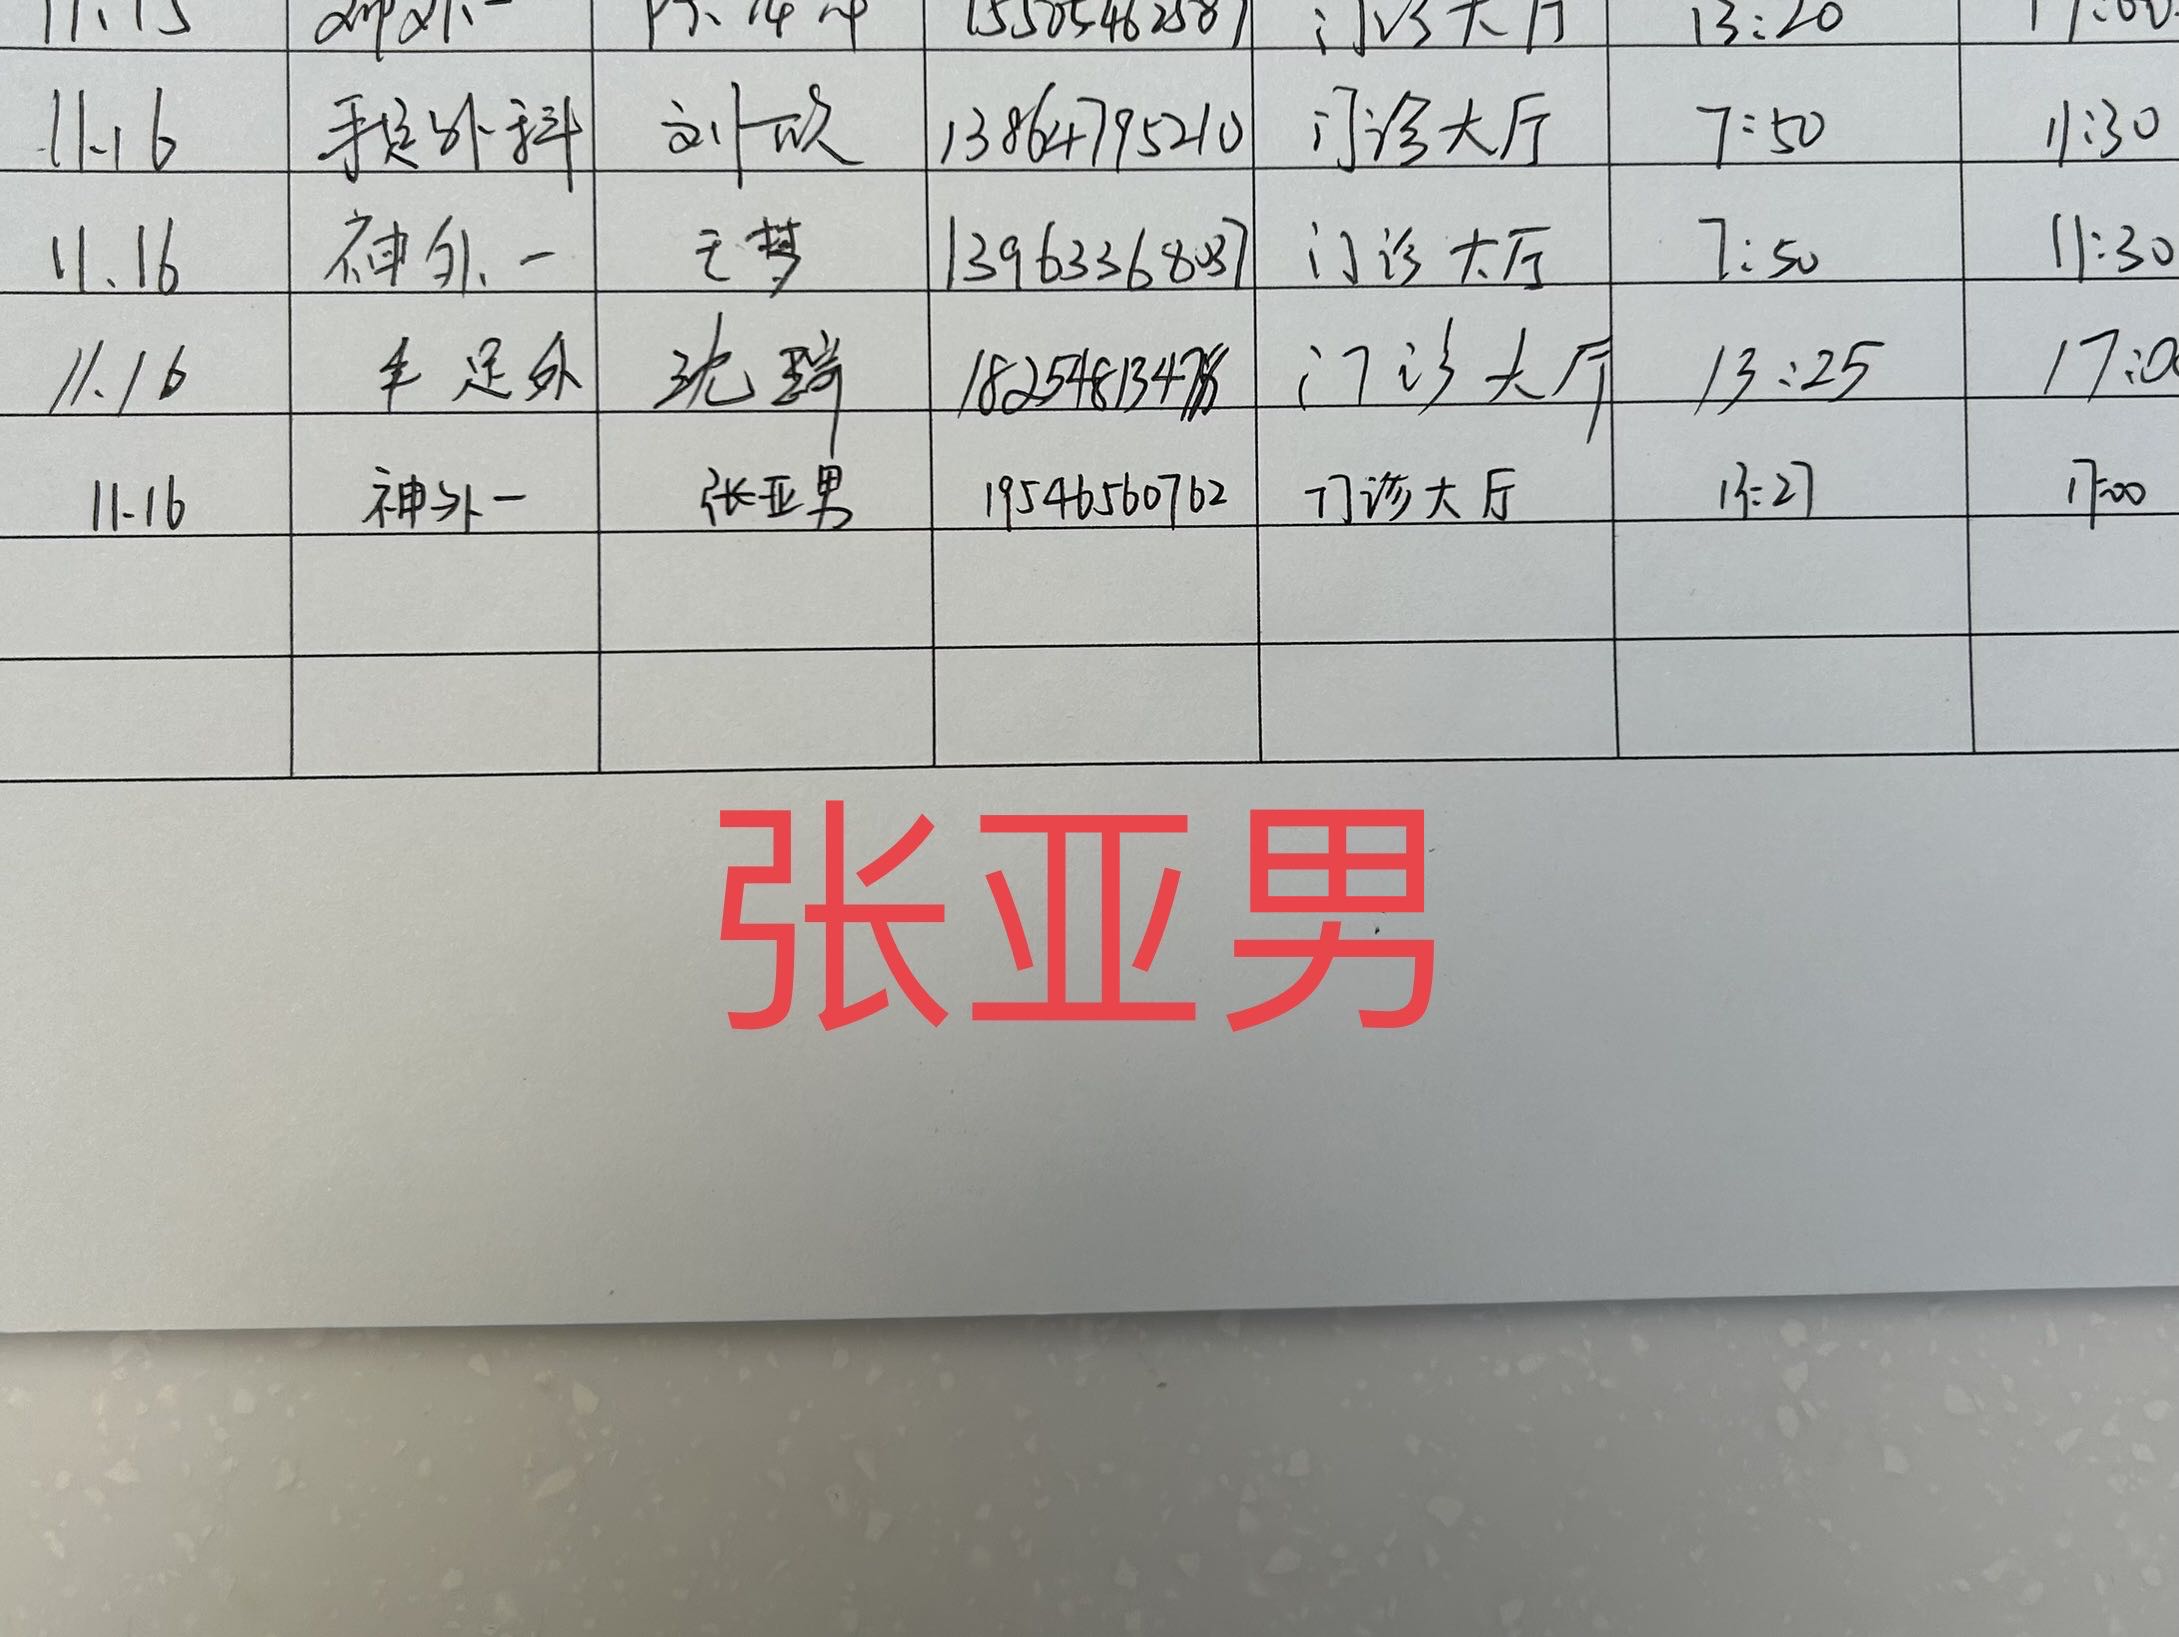 11.15 神外一 15505462587 门诊大厅 13:20 17:00
11.16 手足外科 刘欣 13864795210 门诊大厅 7:50 11:30
11.16 神外一 王梦 13963368037 门诊大厅 7:50 11:30
11.16 手足外 沈 182548134 门诊大厅 13:25 17:0
11.16 神外一 张亚男 19546560762 门诊大厅 13:27 17:00
张亚男